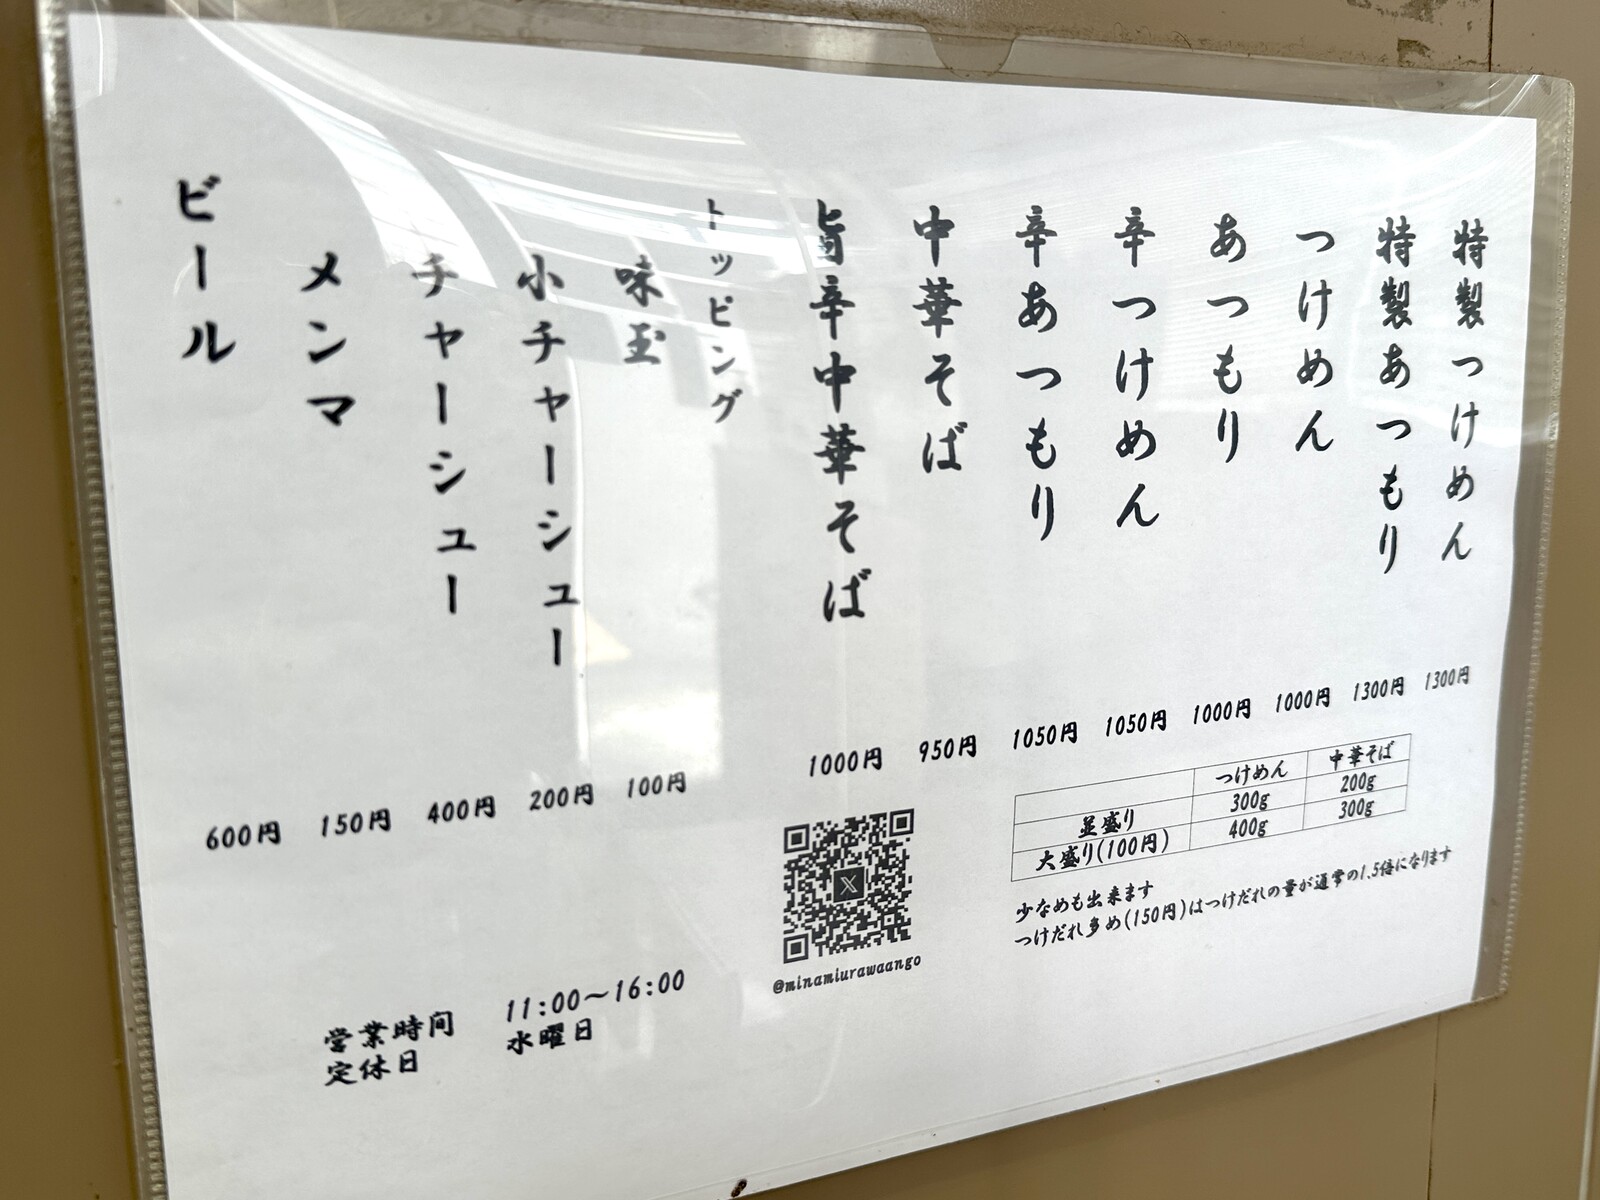 特製つけめん 1300円
特製あつもり 1300円
つけめん 1000円
あつもり 1000円
辛つけめん 1050円
辛あつもり 1050円
中華そば 950円
旨辛中華そば 1000円
トッピング
味玉 100円
小チャーシュー 200円
チャーシュー 400円
メンマ 150円
ビール 600円
つけめん 中華そば
並盛り 300g 200g
大盛り(100円) 400g 300g
少なめも出来ます
つけだれ多め(150円)はつけだれの量が通常の1.5倍になります
@minamiurawaango
営業時間 11:00～16:00
定休日 水曜日